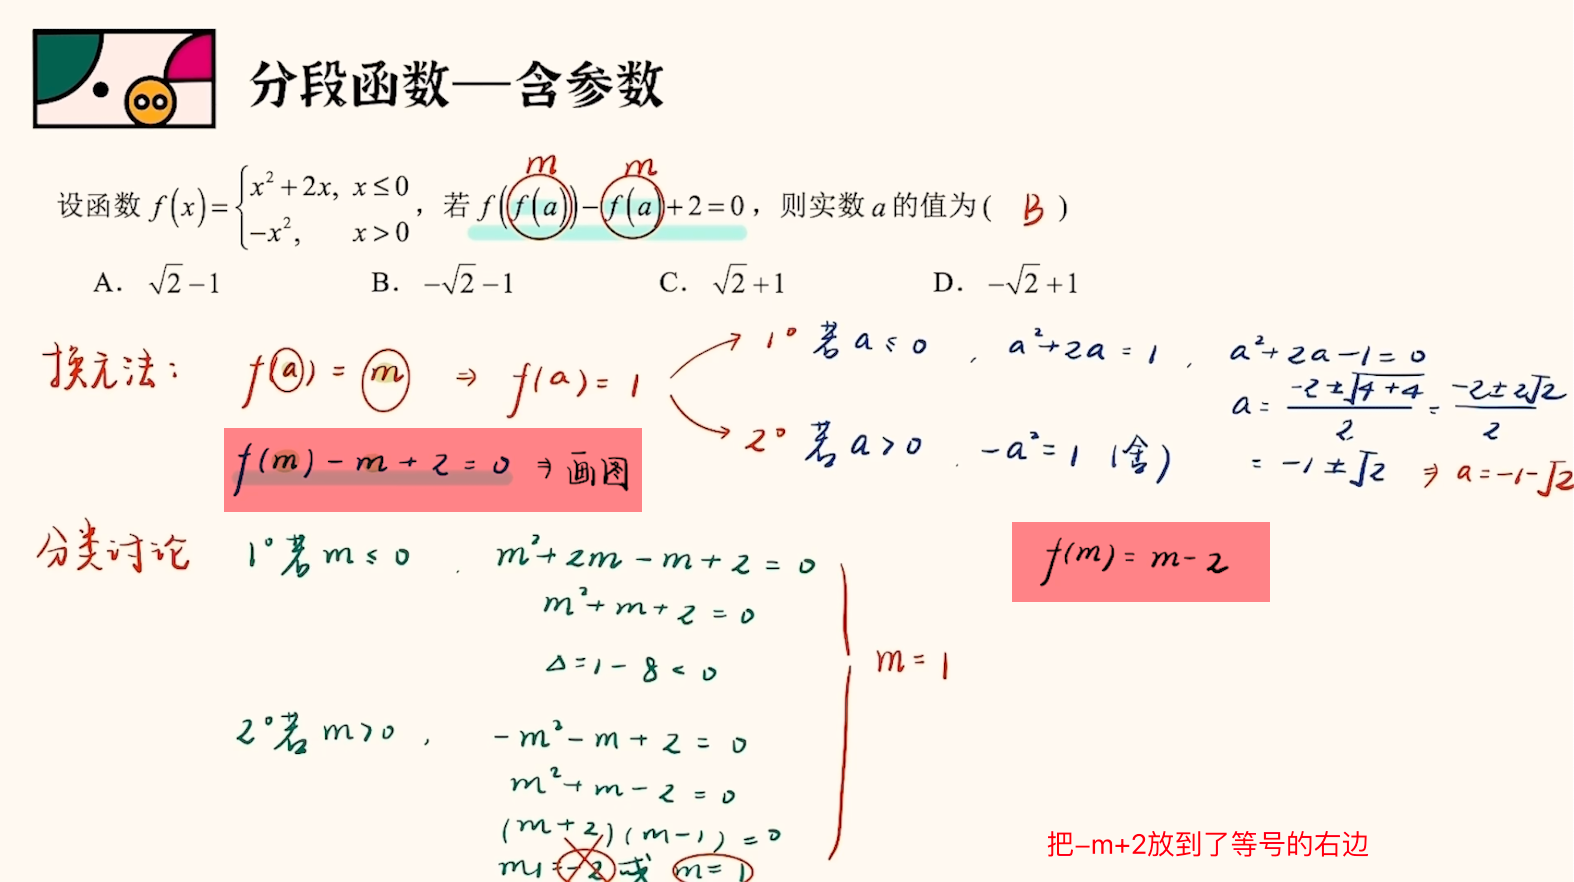 分段函数—含参数
设函数 f(x)={x²+2x, x≤0
−x², x>0 ,若 f(f(a))−f(a)+2=0,则实数 a 的值为( B )
m m
A. √2−1 B. −√2−1 C. √2+1 D. −√2+1
换元法: f(a) = m ⇒ f(a) = 1
1° 若 a ≤ 0 , a²+2a = 1 , a²+2a−1 = 0
a = (−2±√(4+4))/2 = (−2±2√2)/2
= −1±√2 ⇒ a=−1−√2
2° 若 a > 0 , −a² = 1 (舍)
f(m) − m + 2 = 0 ⇒ 画图
分类讨论 1° 若 m ≤ 0 , m²+2m−m+2 = 0
m²+m+2 = 0
Δ=1−8 < 0
2° 若 m>0 , −m²−m+2 = 0
m²+m−2 = 0
(m+2)(m−1) = 0
m1=−2 或 m=1
m = 1
f(m) = m−2
把−m+2放到了等号的右边